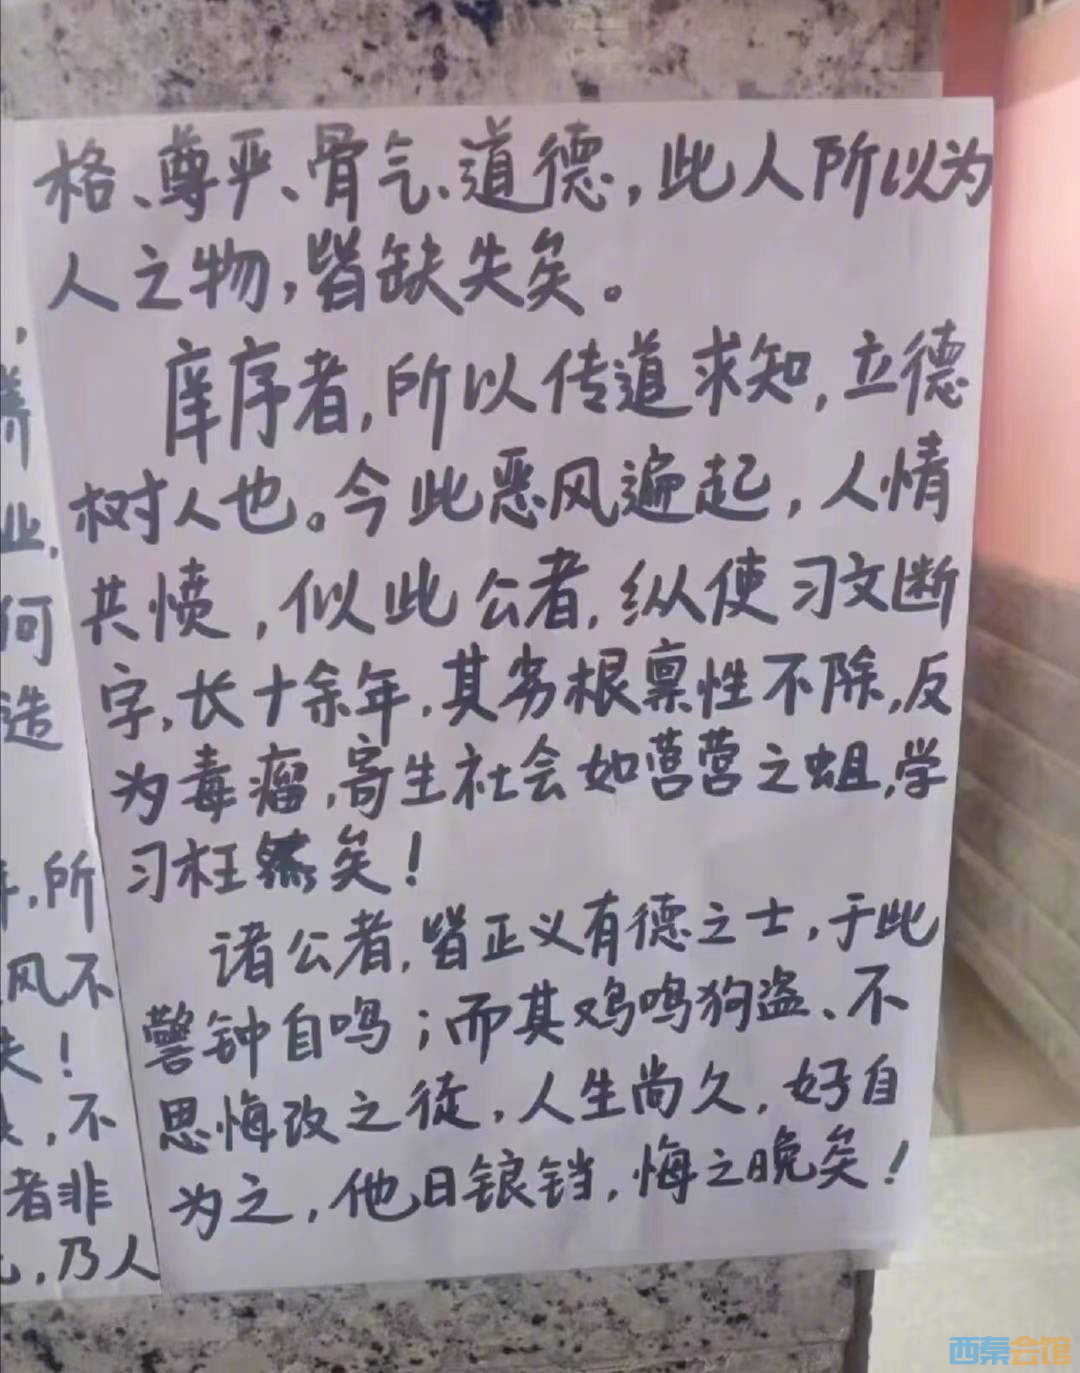 格、尊严、骨气、道德，此人所以为
人之物，皆缺失矣。
庠序者，所以传道求知，立德
树人也。今此恶风遍起，人情
共愤，似此公者，纵使习文断
字，长十余年，其劣根禀性不除，反
为毒瘤，寄生社会如营营之蛆，学
习枉然矣！
诸公者，皆正义有德之士，于此
警钟自鸣；而其鸡鸣狗盗、不
思悔改之徒，人生尚久，好自
为之，他日锒铛，悔之晚矣！
，
养
业，
何
造
，所
风不
失！
，不
者非
，乃人
西秦会馆